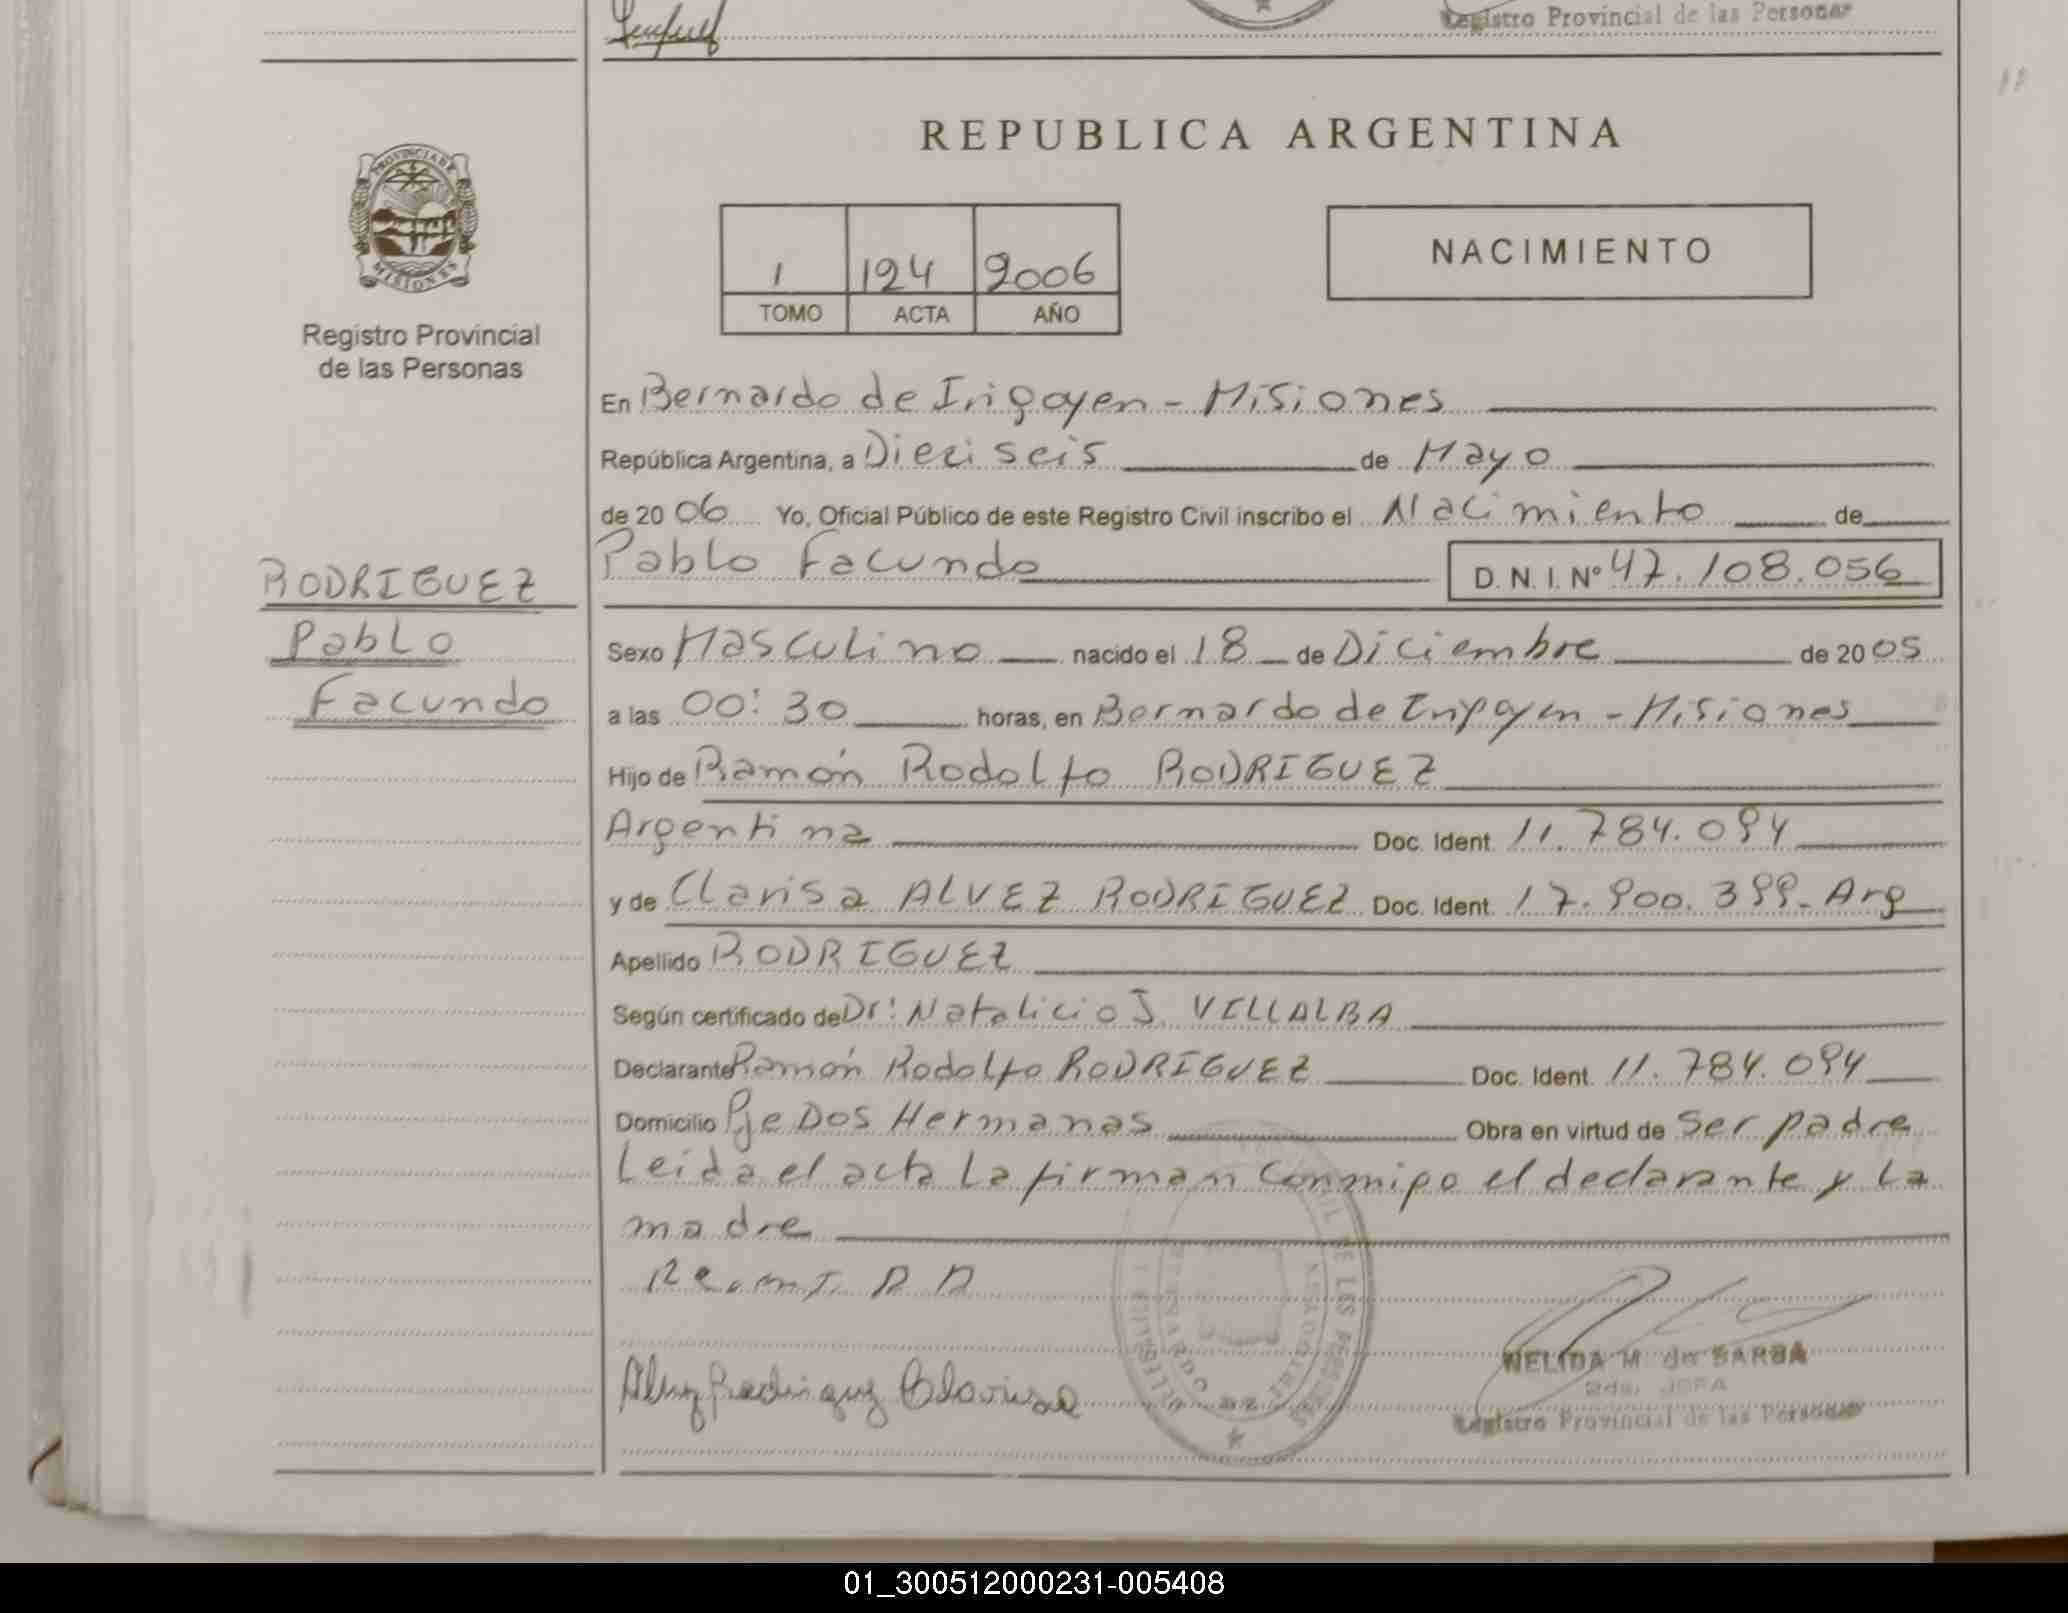 Registro Provincial de las Personas
REPUBLICA ARGENTINA
PROVINCIA DE
MISIONES
Registro Provincial
de las Personas
1 124 2006
TOMO ACTA AÑO
NACIMIENTO
En Bernardo de Irigoyen - Misiones
República Argentina, a Dieci seis de Mayo
de 20 06 Yo, Oficial Público de este Registro Civil inscribo el Nacimiento de
Pablo Facundo D. N. I. Nº 47.108.056
RODRIGUEZ
Pablo
Facundo
Sexo Masculino nacido el 18 de Diciembre de 20 05
a las 00:30 horas, en Bernardo de Irigoyen - Misiones
Hijo de Ramón Rodolfo RODRIGUEZ
Argentina Doc. Ident. 11.784.094
y de Clarisa ALVEZ RODRIGUEZ Doc. Ident. 17.900.399- Arg
Apellido RODRIGUEZ
Según certificado de Dr: Natalicio J. VILLALBA
Declarante Ramón Rodolfo RODRIGUEZ Doc. Ident. 11.784.094
Domicilio Pje Dos Hermanas Obra en virtud de ser padre
Leida el acta la firman conmigo el declarante y la
madre
R R
Alvez Rodriguez Clarisa
NELIDA M. de BARBA
JEFA
Registro Provincial de las Personas
01_300512000231-005408